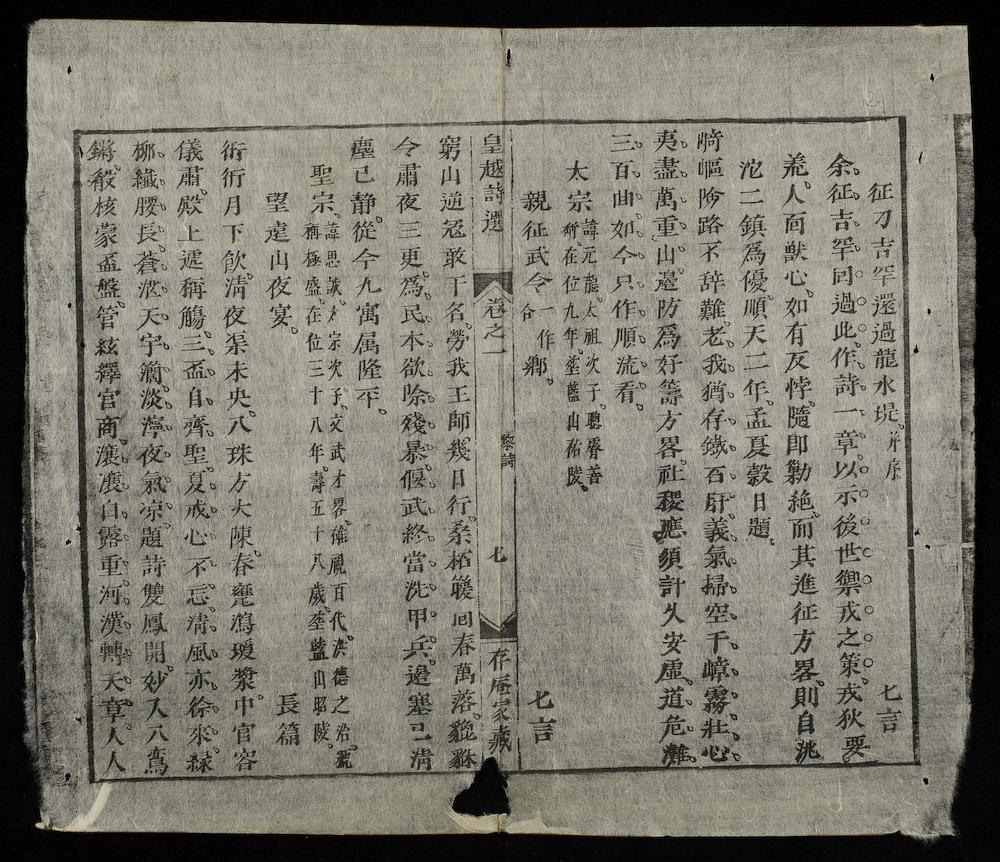 征刁吉罕還過龍水堤 并序 七言
余征吉罕回過此作詩一章以示後世禦戎之策戎狄要
荒人面獸心如有反悖隨即勦絶而其進征方畧則自洮
沱二鎮爲優順天二年孟夏穀日題
崎嶇險路不辞難老我猶存鐵石肝義氣掃空千嶂霧壯心
夷盡萬重山邉防爲好籌方畧社稷應須計久安虛道危灘
三百曲如今只作順流看
太宗 諱元龍太祖次子聰睿善
斷在位九年塟藍山祐陵
親征武令 一作鄕
令 七言
皇越詩選 卷之一 黎詩 七 存庵家藏
窮山逆冦敢干名勞我王師幾日行桑柘暖回春萬落貔貅
令肅夜三更爲民本欲除殘暴偃武終當洗甲兵邉塞已清
塵已静從今九寓属隆平
聖宗 諱思誠太宗次子文武才畧雄視百代洪德之治號
稱極盛在位三十八年壽五十八歲塟藍山昭陵
望遠山夜宴 長篇
衎衎月下飮清夜渠未央八珠方大陳春甕瀉瓊漿中官容
儀肅殿上遞稱觴三盃自齊聖夏戒心不忘清風亦徐來緑
柳纖腰長蒼茫天宇濶淡濘夜氣凉題詩雙鳳開妙入八鸞
鏘殽核蒙盃盤管絃繹宫商瀼瀼白露重河漢轉天章人人